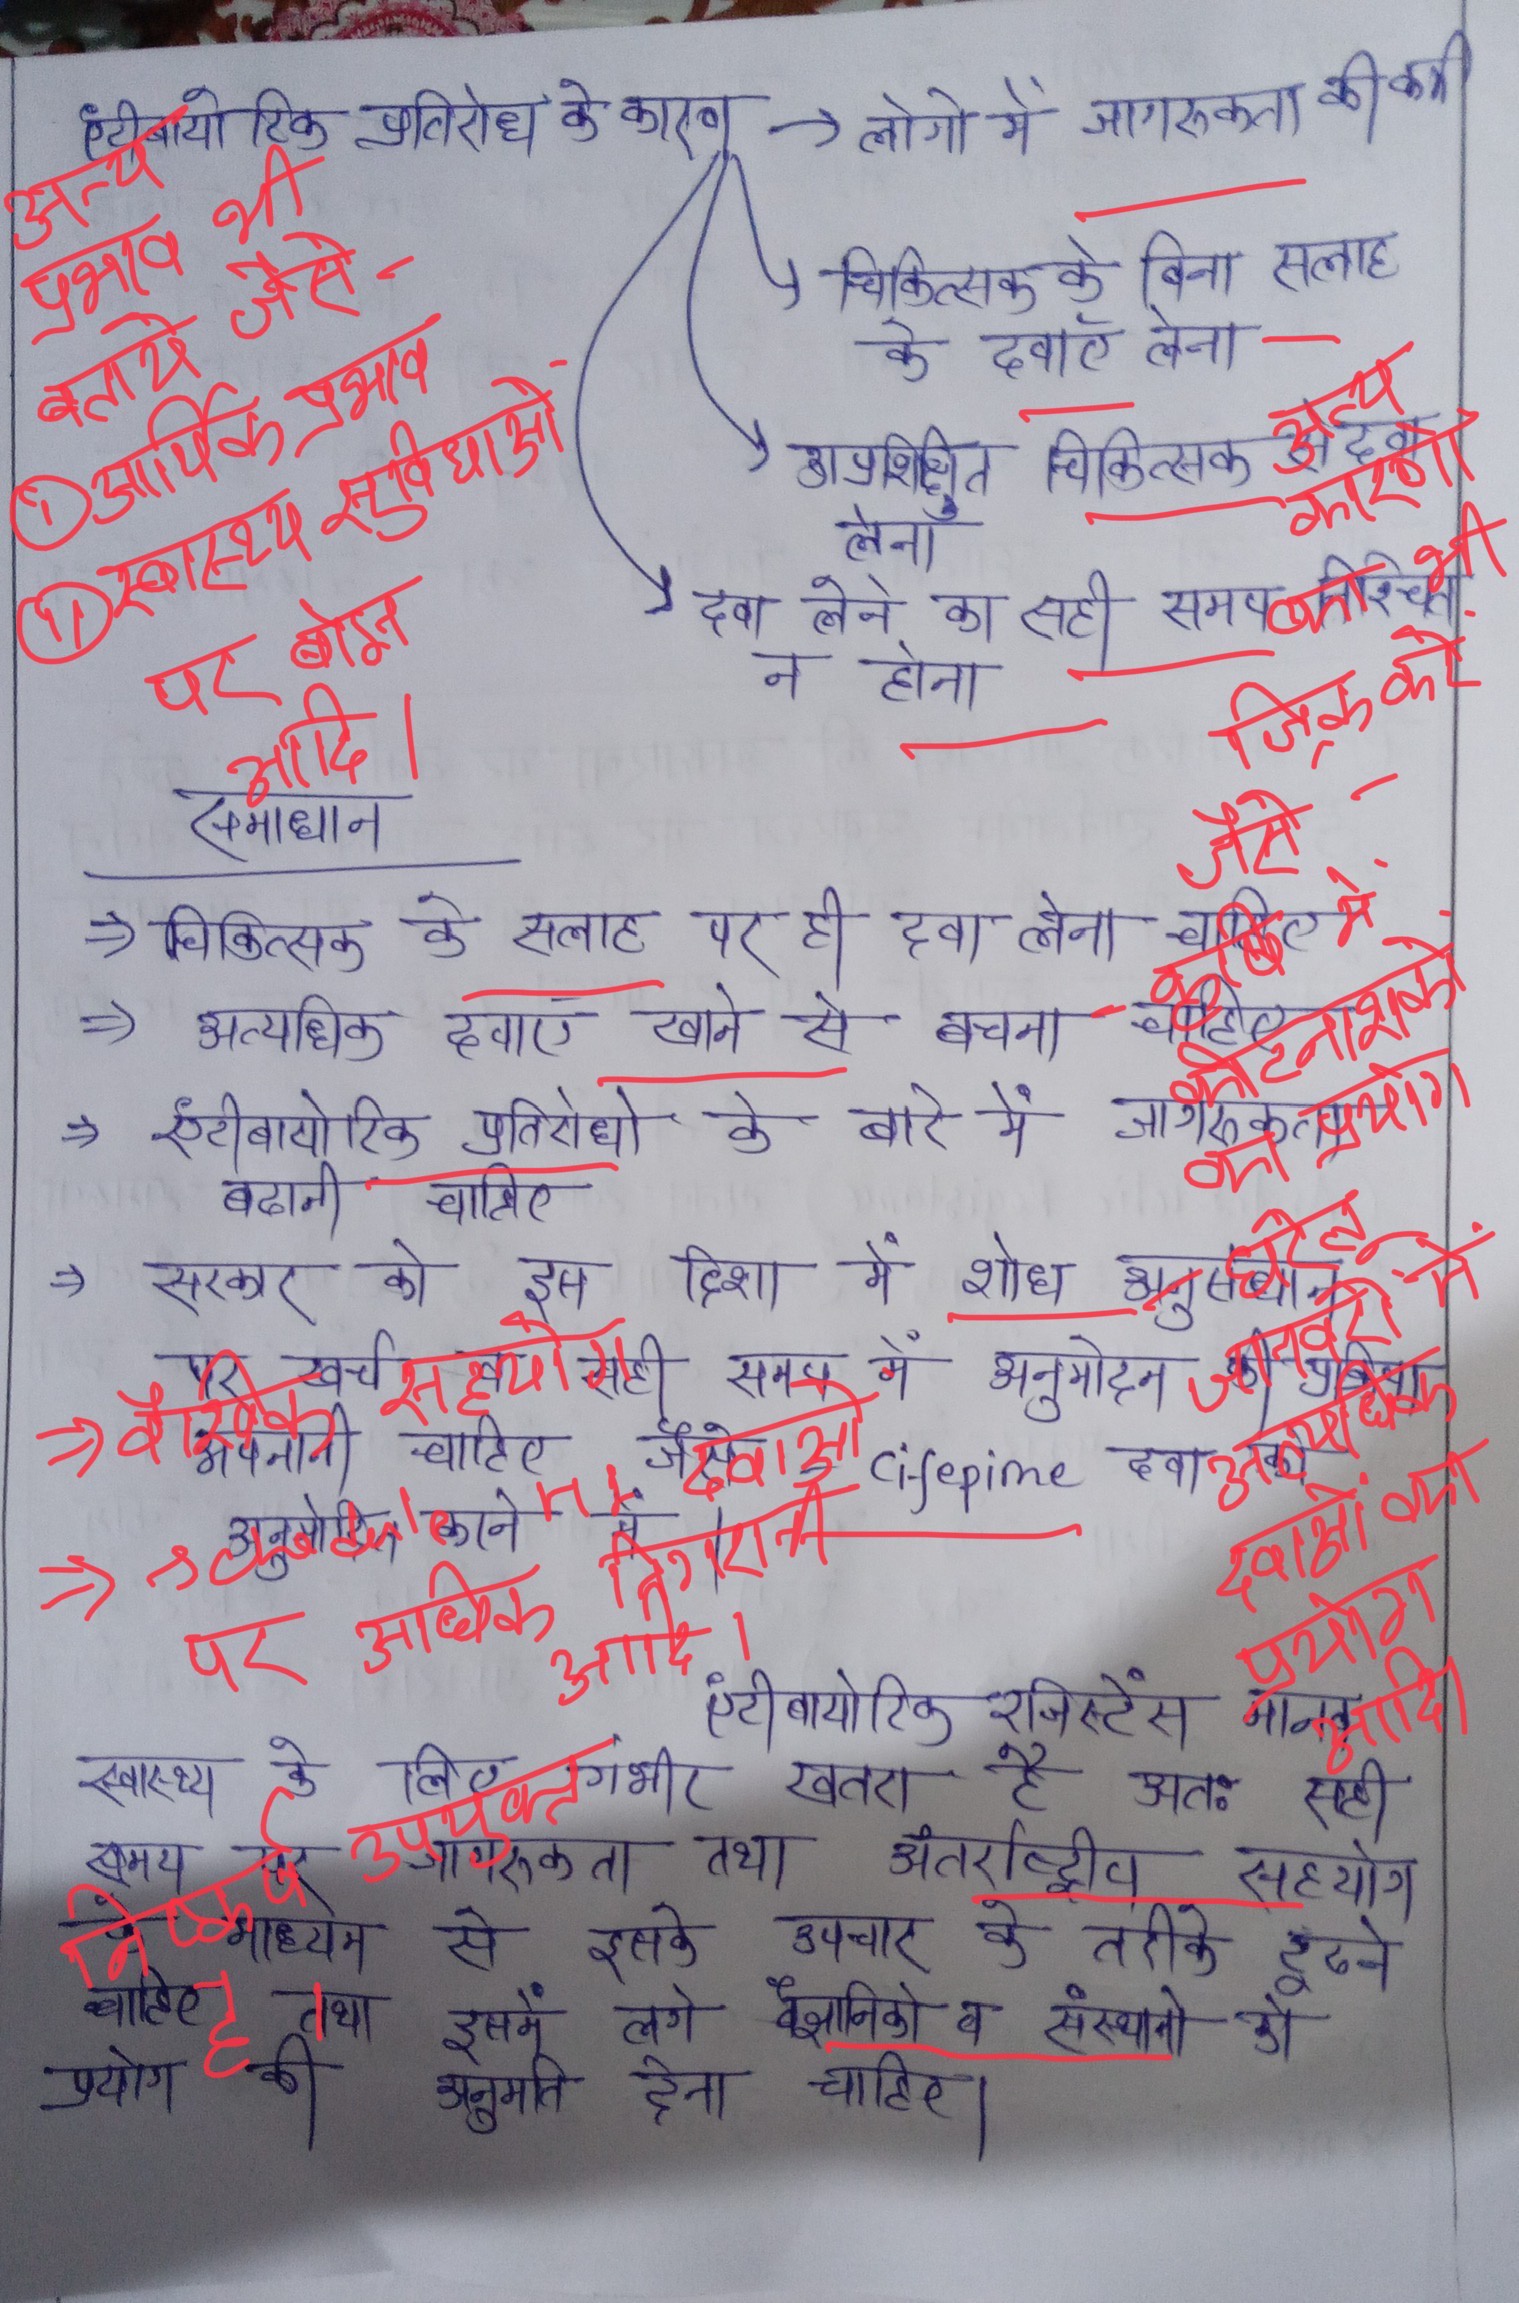 एंटीबायोटिक प्रतिरोध के कारण → लोगो में जागरूकता की कमी
चिकित्सक के बिना सलाह
के दवाएँ लेना
अप्रशिक्षित चिकित्सक से दवा
लेना
दवा लेने का सही समय निश्चित
न होना
अन्य
प्रभाव भी
बताये जैसे -
(i) आर्थिक प्रभाव
(ii) स्वास्थ्य सुविधाओं
पर बोझ
आदि।
अन्य
कारणों
का भी
जिक्र करें
जैसे -
- कृषि में
कीटनाशकों
का प्रयोग
- घरेलू
जानवरों में
अत्यधिक
दवाओं का
प्रयोग
आदि
समाधान
⇒ चिकित्सक के सलाह पर ही दवा लेना चाहिए
⇒ अत्यधिक दवाएं खाने से बचना चाहिए
⇒ एंटीबायोटिक प्रतिरोधो के बारे में जागरूकता
बढानी चाहिए
⇒ सरकार को इस दिशा में शोध अनुसंधान
पर खर्च तथा सही समय में अनुमोदन की प्रक्रिया
अपनानी चाहिए जैसे cifepime दवा को
अनुमोदित करने में
⇒ वैश्विक सहयोग
⇒ दवाओं
पर अधिक निगरानी
आदि।
एंटीबायोटिक रजिस्टेंस मानव
स्वास्थ्य के लिए गंभीर खतरा है अतः सही
समय पर जागरूकता तथा अंतर्राष्ट्रीय सहयोग
के माध्यम से इसके उपचार के तरीके ढूढने
चाहिए तथा इसमें लगे वैज्ञानिको व संस्थानो को
प्रयोग की अनुमति देना चाहिए।
निष्कर्ष उपयुक्त
है